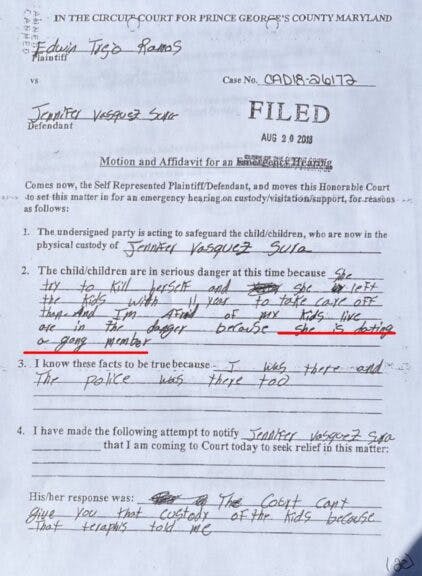 IN THE CIRCUIT COURT FOR PRINCE GEORGE'S COUNTY MARYLAND
Edwin Trejo Ramos
Plaintiff
vs
Case No. CAD18-26172
Jennifer Vasquez Sura
Defendant
FILED
AUG 20 2018
Motion and Affidavit for an Emergency Hearing
Comes now, the Self Represented Plaintiff/Defendant, and moves this Honorable Court
to set this matter in for an emergency hearing on custody/visitation/support, for reasons
as follows:
1. The undersigned party is acting to safeguard the child/children, who are now in the
physical custody of Jennifer Vasquez Sura
2. The child/children are in serious danger at this time because She
try to kill herself and she left
the kids with 11 year to take care off
them. And I'm afrad of my kids live
are in the danger because she is dating
a gang member
3. I know these facts to be true because I was there and
The police was there too
4. I have made the following attempt to notify Jennifer Vasquez Sura
that I am coming to Court today to seek relief in this matter:
His/her response was: The Court cant
give you that custody of the kids because
That teraphis told me